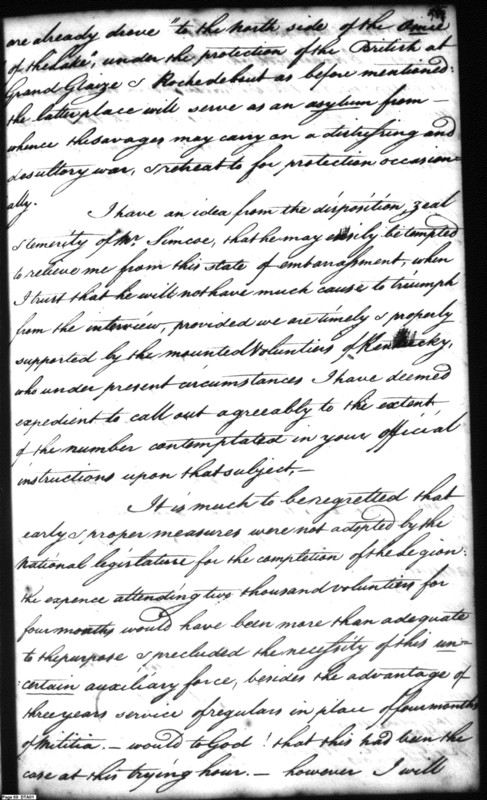 are already drove "to the North side of the Omie
of the Lake", under the protection of the British at
Grand Glaize & Roche debout as before mentioned:
the latter place will serve as an asylum from —
whence the savages may carry on a distressing and
dosultory war, & retreat to for protection occasion=
ally.
I have an idea from the disposition, zeal
& temerity of Mr Simcoe, that he may easily be tempted
to relieve me from this state of embarrassment, when
I trust that he will not have much cause to triumph
from the interview, provided we are timely & properly
supported by the mounted Voluntiers of Kentucky,
who under present circumstances I have deemed
expedient to call out agreeably to the extent
of the number contemplated in your official
instructions upon that subject, —
It is much to be regretted that
early & proper measures were not adopted by the
National legislature for the completion of the Legion:
the expence attending two thousand voluntiers for
four months would have been more than adequate
to the purpose & precluded the necessity of this un=
certain auxiliary force, besides the advantage of
three years service of regulars in place of four months
of Militia. — would to God! that this had been the
case at this trying hour. — however I will